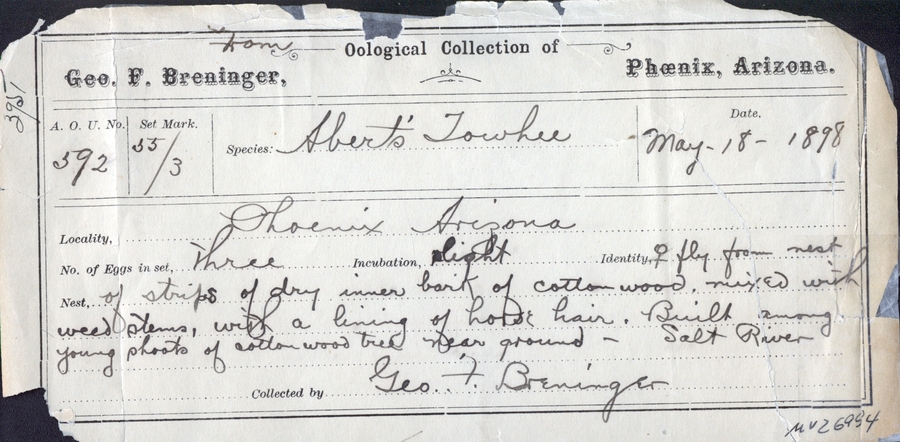 From Oological Collection of
Geo. F. Breninger, Phœnix, Arizona.
3951
A. O. U. No. Set Mark. Date.
592 55/3 Species: Abert's Towhee May-18-1898
Locality, Phoenix Arizona
No. of Eggs in set, Three Incubation, slight Identity, ♀ fly from nest
Nest, of strips of dry inner bark of cottonwood, mixed with
weed stems, with a lining of horse hair. Built among
young shoots of cottonwood tree near ground - Salt River
Collected by Geo. F. Breninger
MVZ 6994